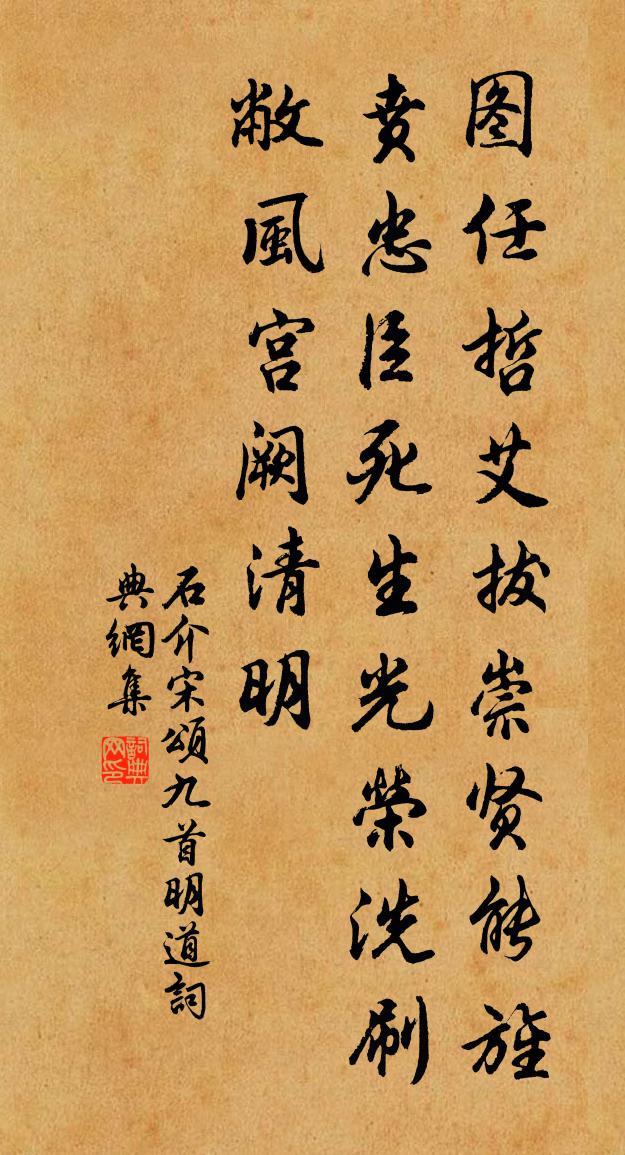 图任哲艾拔崇贤能旌
贲忠臣死生光榮洗刷
敝風宫阙清明
石介宋頌九首明道詞
典網集
詞典
网印